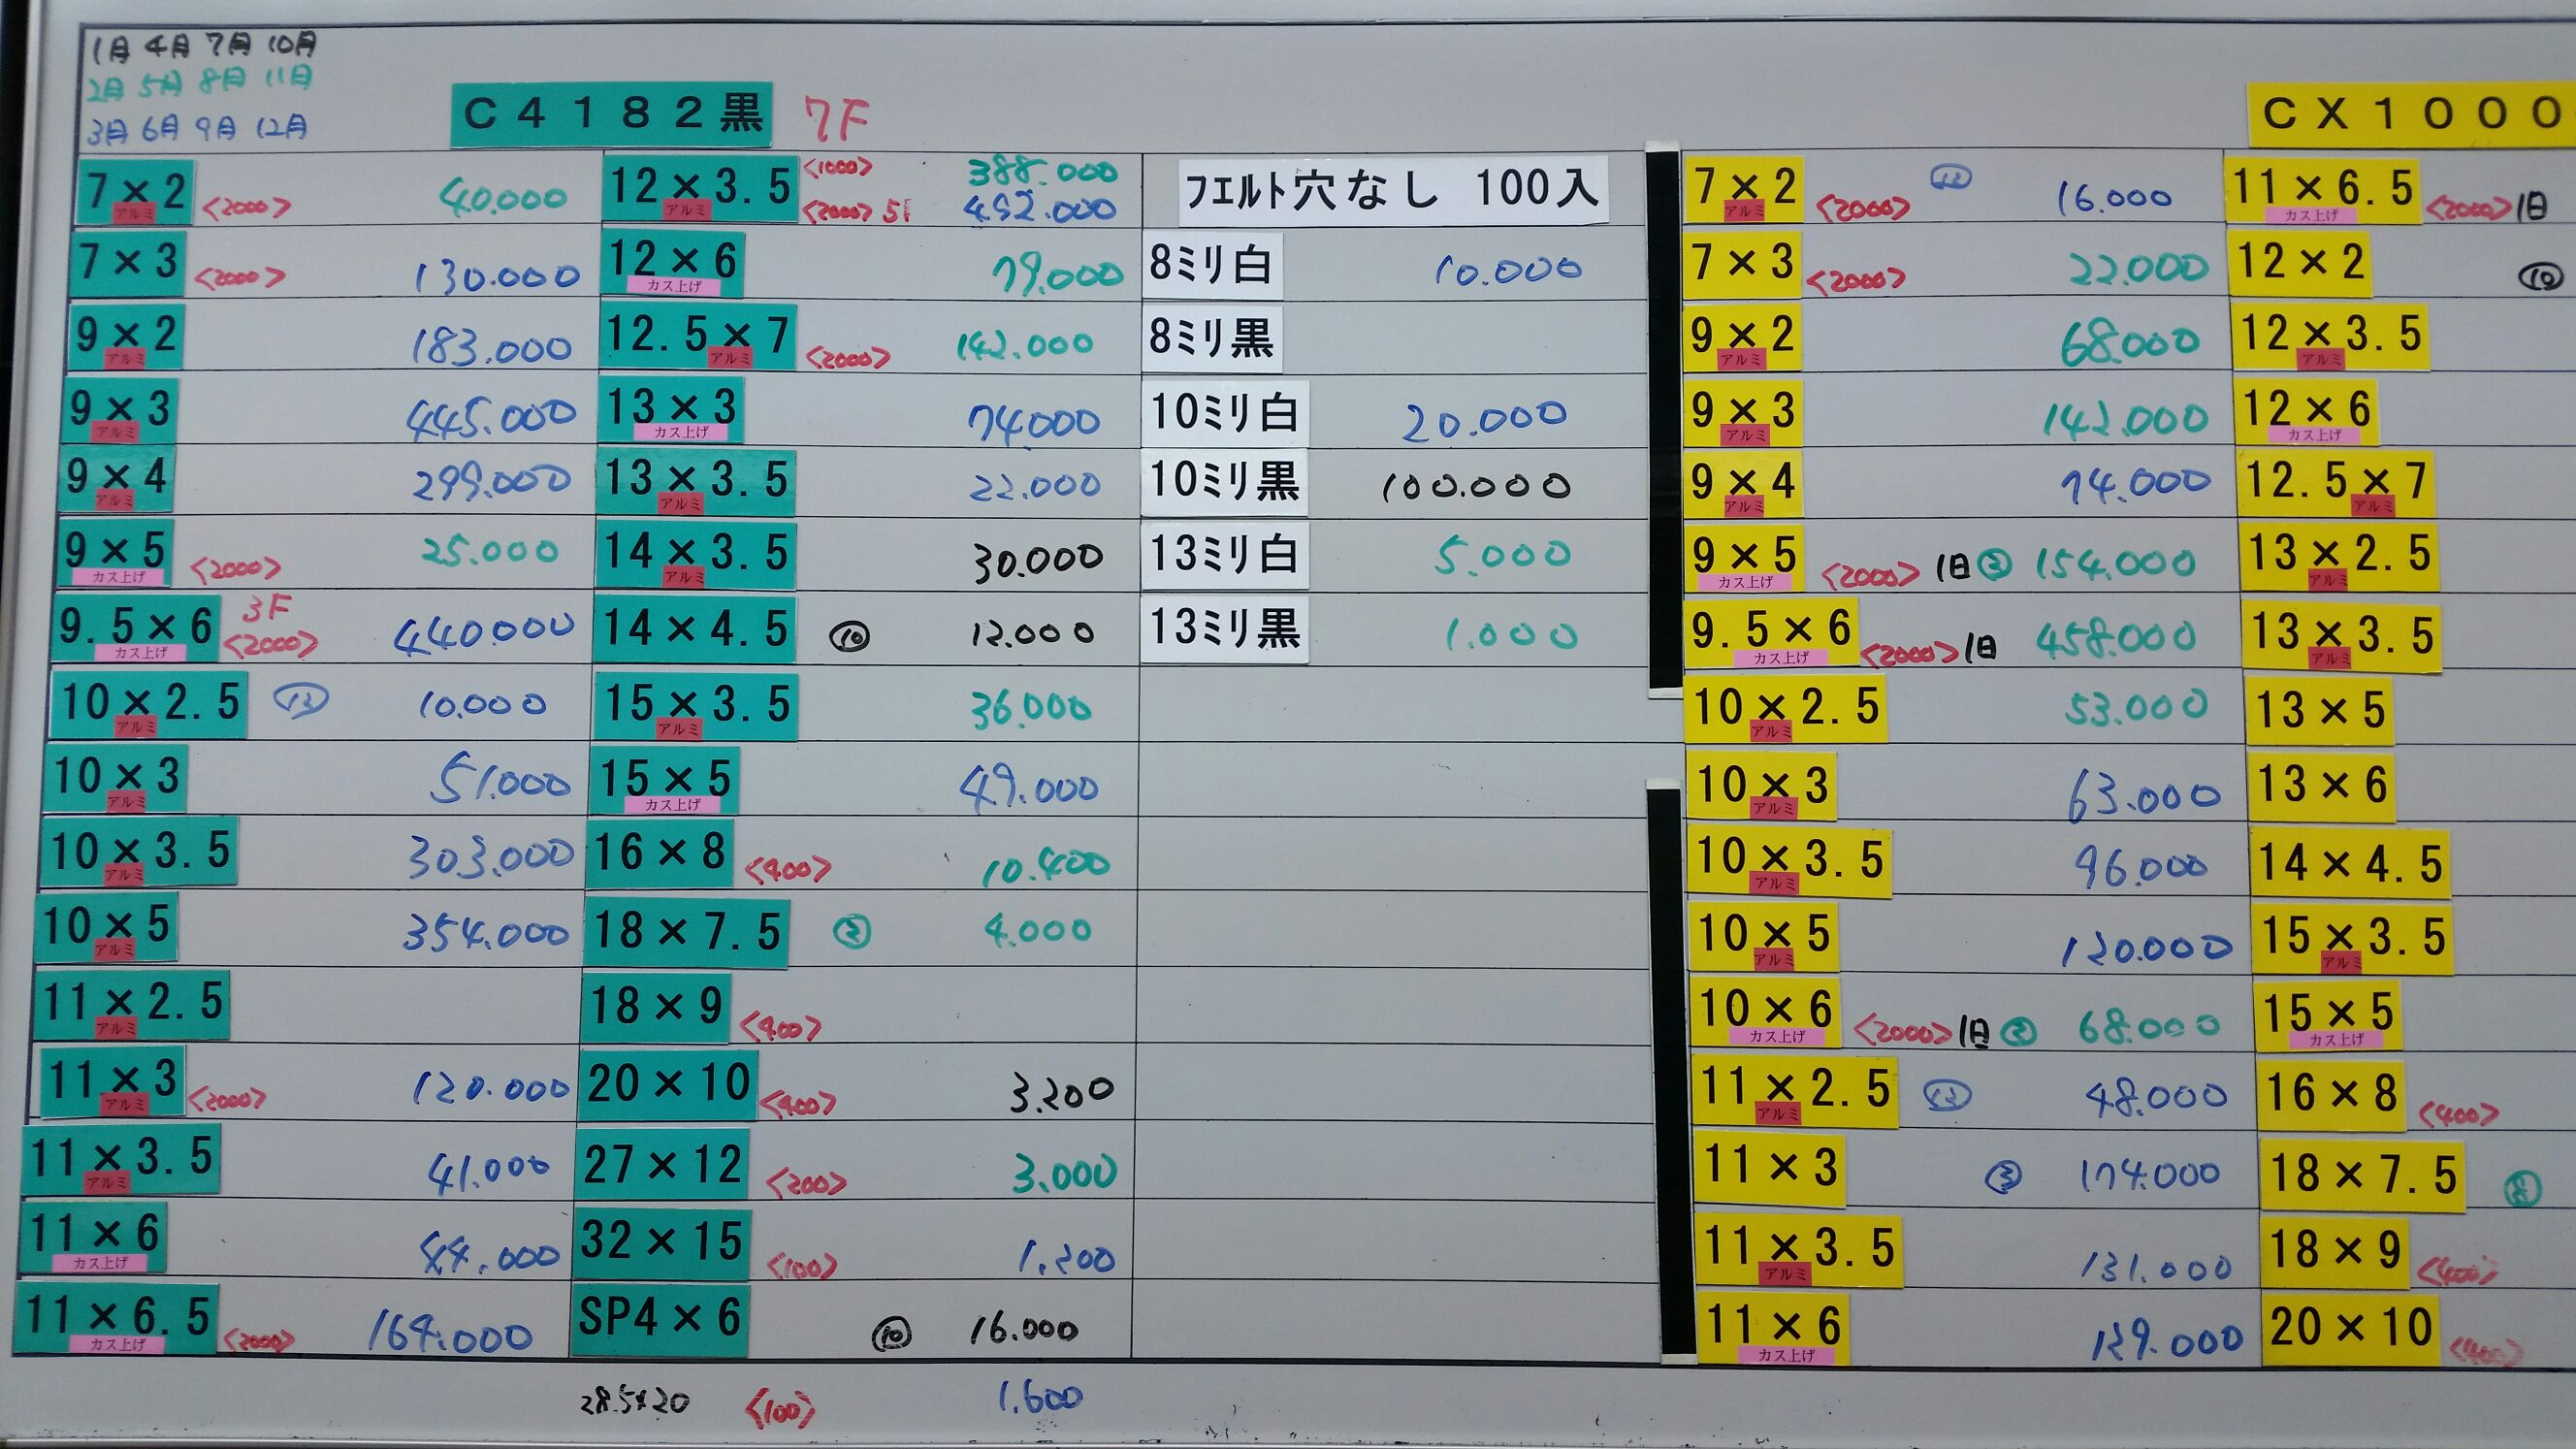 1月 4月 7月 10月
2月 5月 8月 11月
3月 6月 9月 12月
C4182黒 7F
CX1000
7×2 アルミ <2000> 40.000
7×3 <2000> 130.000
9×2 アルミ 183.000
9×3 アルミ 445.000
9×4 アルミ 299.000
9×5 カス上げ <2000> 25.000
9.5×6 カス上げ 3F <2000> 440.000
10×2.5 アルミ 10.000
10×3 アルミ 51.000
10×3.5 アルミ 303.000
10×5 アルミ 354.000
11×2.5 アルミ
11×3 アルミ <2000> 120.000
11×3.5 アルミ 41.000
11×6 カス上げ 44.000
11×6.5 カス上げ <2000> 164.000
12×3.5 アルミ <1000> 388.000
<2000> 492.000
12×6 カス上げ 79.000
12.5×7 アルミ <2000> 142.000
13×3 カス上げ 74000
13×3.5 アルミ 22.000
14×3.5 アルミ 30.000
14×4.5 ⑩ 12.000
15×3.5 アルミ 36.000
15×5 カス上げ 49.000
16×8 <400> 10.400
18×7.5 4.000
18×9 <400>
20×10 <400> 3.200
27×12 <200> 3.000
32×15 <100> 1.200
SP4×6 ⑩ 16.000
28.5×20 <100> 1.600
フエルト穴なし 100入
8ミリ白 10.000
8ミリ黒
10ミリ白 20.000
10ミリ黒 100.000
13ミリ白 5.000
13ミリ黒 1.000
7×2 アルミ <2000> ⑫ 16.000
7×3 <2000> 22.000
9×2 アルミ 68.000
9×3 アルミ 142.000
9×4 アルミ 74.000
9×5 カス上げ <2000> 1日 154.000
9.5×6 カス上げ <2000> 1日 458.000
10×2.5 アルミ 53.000
10×3 アルミ 63.000
10×3.5 アルミ 96.000
10×5 アルミ 120.000
10×6 カス上げ <2000> 1日 68.000
11×2.5 アルミ ⑫ 48.000
11×3 ③ 174.000
11×3.5 アルミ 131.000
11×6 カス上げ 129.000
11×6.5 カス上げ <2000> 1日
12×2 ⑩
12×3.5 アルミ
12×6 カス上げ
12.5×7 アルミ
13×2.5 アルミ
13×3.5 アルミ
13×5
13×6
14×4.5
15×3.5 アルミ
15×5 カス上げ
16×8 <400>
18×7.5
18×9 <400>
20×10 <400>